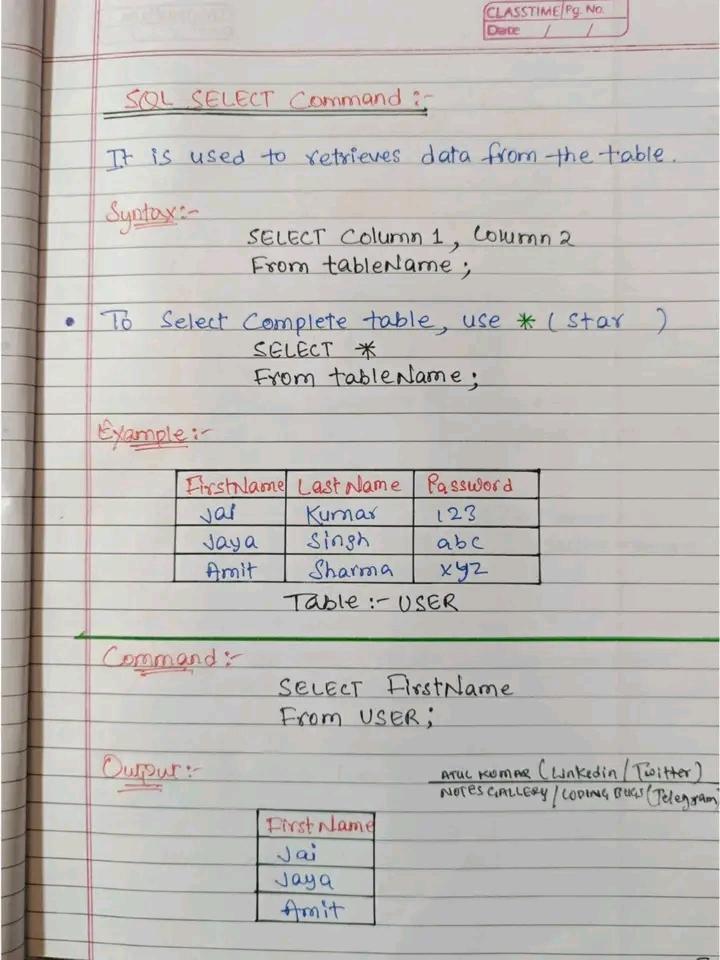 CLASSTIME Pg. No.
Date / /
SQL SELECT Command :-
It is used to retrieves data from the table.
Syntax :-
SELECT Column 1, Column 2
From tableName ;
• To Select Complete table, use * ( Star )
SELECT *
From tableName ;
Example :-
FirstName Last Name Password
Jai Kumar 123
Jaya Singh abc
Amit Sharma xyz
Table :- USER
Command :-
SELECT FirstName
From USER ;
Output :-
ATUL KUMAR (Linkedin / Twitter)
NOTES GALLERY / CODING BUGS (Telegram)
First Name
Jai
Jaya
Amit